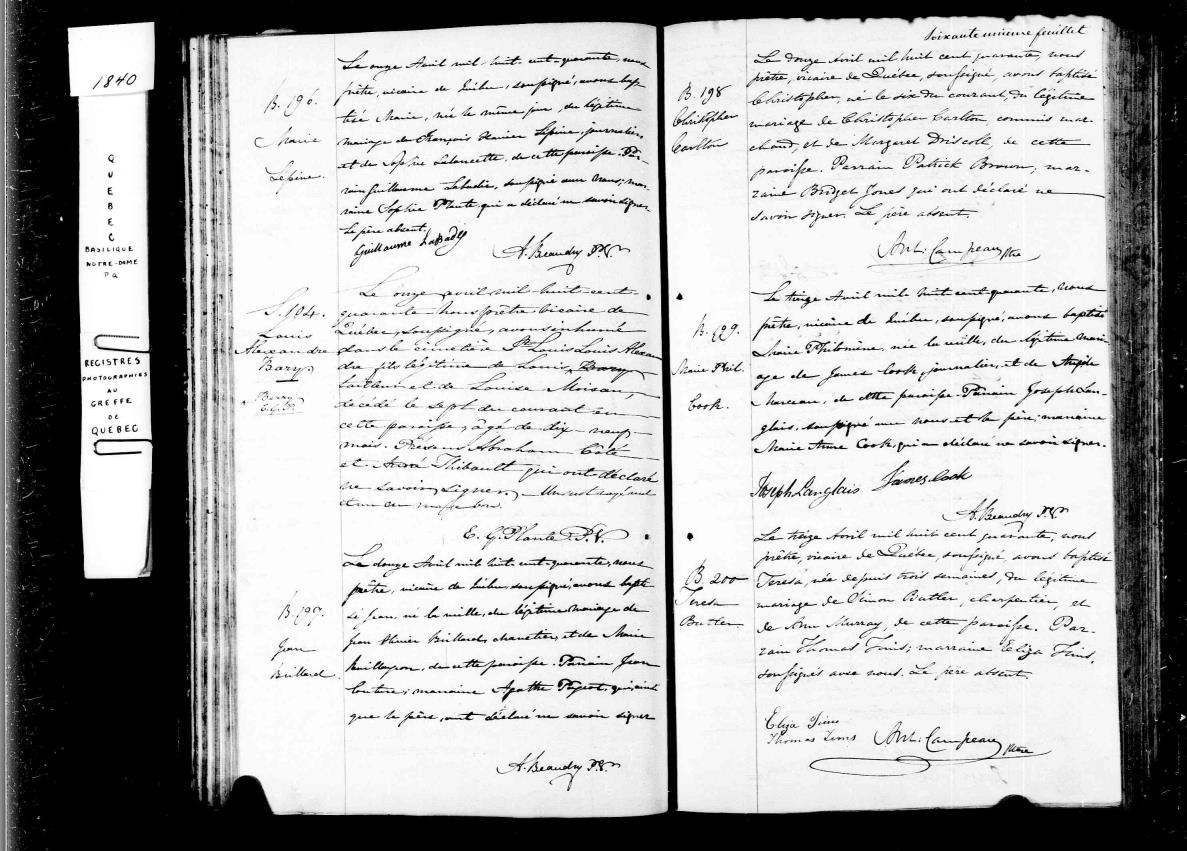 1840
QUEBEC
BASILIQUE
NOTRE-DAME
P Q
REGISTRES
PHOTOGRAPHIES
AU
GREFFE
DE
QUEBEC
B. 196.
Marie
Lepine.
Le onze Avril mil-huit-cent-quarante, nous
prêtre, vicaire de Québec, soussigné, avons bap
tisé Marie, née le même jour, du légitime
mariage de François Xavier Lépine, journalier,
et de Sophie, de cette paroisse. Par-
rain Guillaume Labadie, soussigné avec nous; mar-
raine Sophie Plante qui a déclaré ne savoir signer.
Le père absent.
Guillaume LaBadie
A. Beaudry P.V.
S. 194.
Louis
Alexandre
Bary
Barry
E.G.P.
Le onze avril mil-huit-cent-
quarante Nous prêtre vicaire de
Québec, soussigné, avons inhumé
dans le cimetière St. Louis Louis Alexan
dre fils légitime de Louis Bary
et de Louise Moisan,
décédé le sept du courant en
cette paroisse, âgé de dix-neuf
mois. Présens Abraham Coté
et André Thibault qui ont déclaré
ne savoir signer, Un mot rayé nul
et un en marge bon.
E. G. Plante P.V.
B. 197.
Jean
Brillard.
Le douze Avril mil huit cent-quarante, nous
prêtre, vicaire de Québec, soussigné, avons bapti
sé Jean, né la veille, du légitime mariage de
Jean Brillard, charretier, et de Marie
, de cette paroisse. Parrain Jean
Couture; marraine Agathe, qui, ainsi
que le père, ont déclaré ne savoir signer
A. Beaudry P.V.
Soixante unieme feuillet
B. 198
Christopher
Carlton
Le douze Avril mil huit cent quarante, nous
prêtre, vicaire de Québec, soussigné, avons baptisé
Christopher, né le six du courant, du légitime
mariage de Christopher Carlton, commis mar-
chand, et de Margaret Driscoll, de cette
paroisse. Parrain Patrick Brown, mar-
raine Bridget Jones qui ont déclaré ne
savoir signer. Le père absent.
Ant: Campeau Ptre
B. 199.
Marie Phil.
Cook.
Le treize Avril mil-huit cent quarante, nous
prêtre, vicaire de Québec, soussigné, avons baptisé
Marie Philomène, née la veille, du légitime mari-
age de James Cook, journalier, et de Angèle
Marceau, de cette paroisse. Parrain Joseph Lan-
glais, soussigné avec nous et le père; marraine
Marie Anne Cook, qui a déclaré ne savoir signer.
Joseph Langlais James Cook
A. Beaudry P.V.
B. 200
Teresa
Butler
Le treize Avril mil huit cent quarante, nous
prêtre, vicaire de Québec, soussigné, avons baptisé
Teresa, née depuis trois semaines, du légitime
mariage de Simon Butler, charpentier, et
de Ann Murray, de cette paroisse. Par-
rain Thomas Tims; marraine Eliza Tims,
soussignés avec nous. Le père absent.
Eliza Tims
Thomas Tims Ant: Campeau Ptre